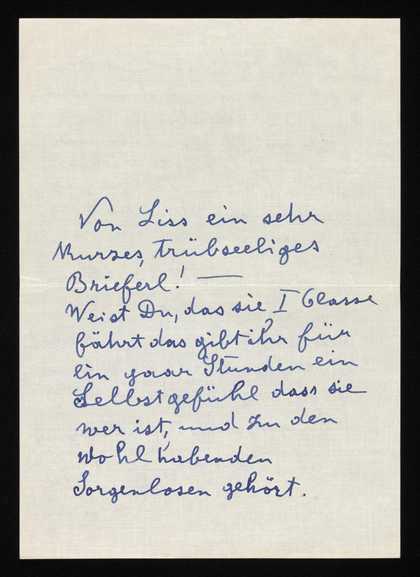 Von Liss ein sehr
kurzes, trübseeliges
Brieferl! —
Weist Du, das sie, I Classe
fährt das gibt ihr für
ein paar Stunden ein
Selbstgefühl dass sie
wer ist, und zu den
wohlhabenden
Sorgenlosen gehört.